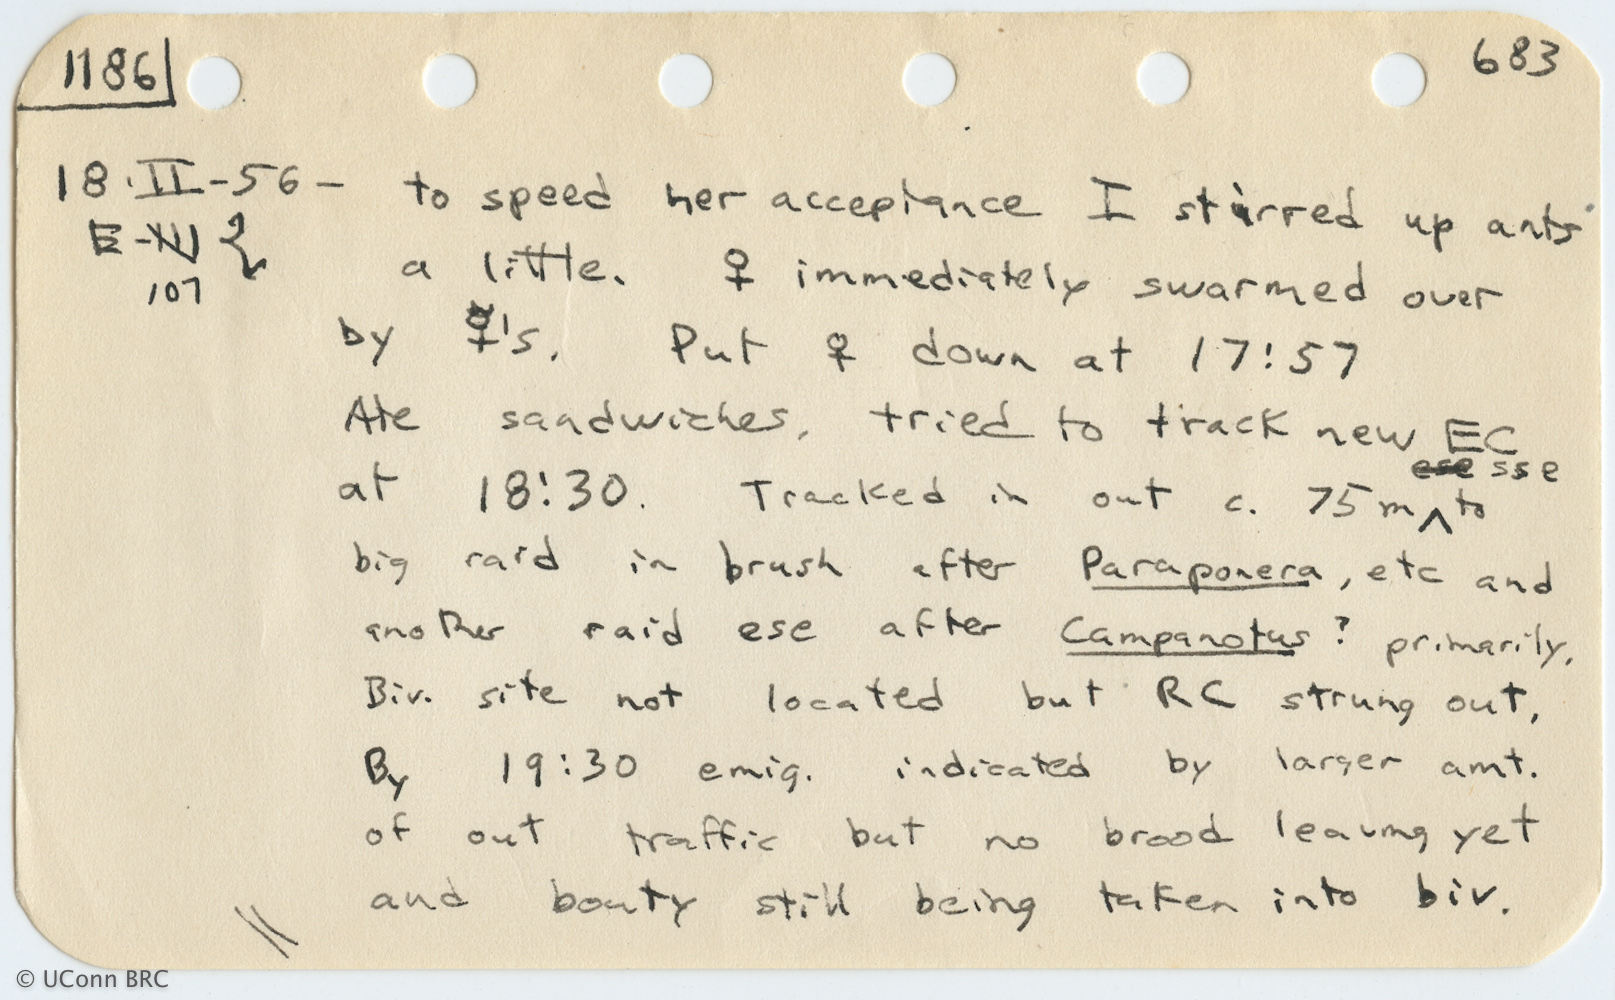 1186 683
18·II-56- to speed her acceptance I stirred up ants
E-IV a little. ♀ immediately swarmed over
107
by ☿'s. Put ♀ down at 17:57
Ate sandwiches, tried to track new EC
at 18:30. Tracked in out c. 75m ^ sse to
big raid in brush after Paraponera, etc and
another raid ese after Campanotus? primarily,
Biv. site not located but RC strung out,
By 19:30 emig. indicated by larger amt.
of out traffic but no brood leaving yet
and booty still being taken into biv.
© UConn BRC